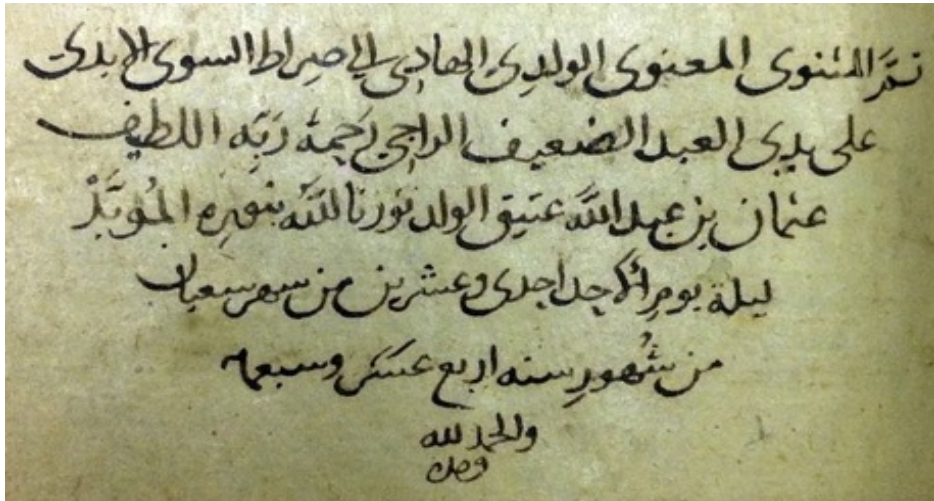 تمّ المثنوى المعنوى الولدى الهادى الى صراط السوى الابدى
على يدى العبد الضعيف الراجى رحمة ربّه اللطيف
عثمان بن عبد الله عتيق الولد نوّرنا الله بنوره المُوبَّدْ
ليلة يوم الاحد احدى وعشرين من شهر شعبان
من شُهورِ سنه اربع عشر وسبعمايه
والحمد لله